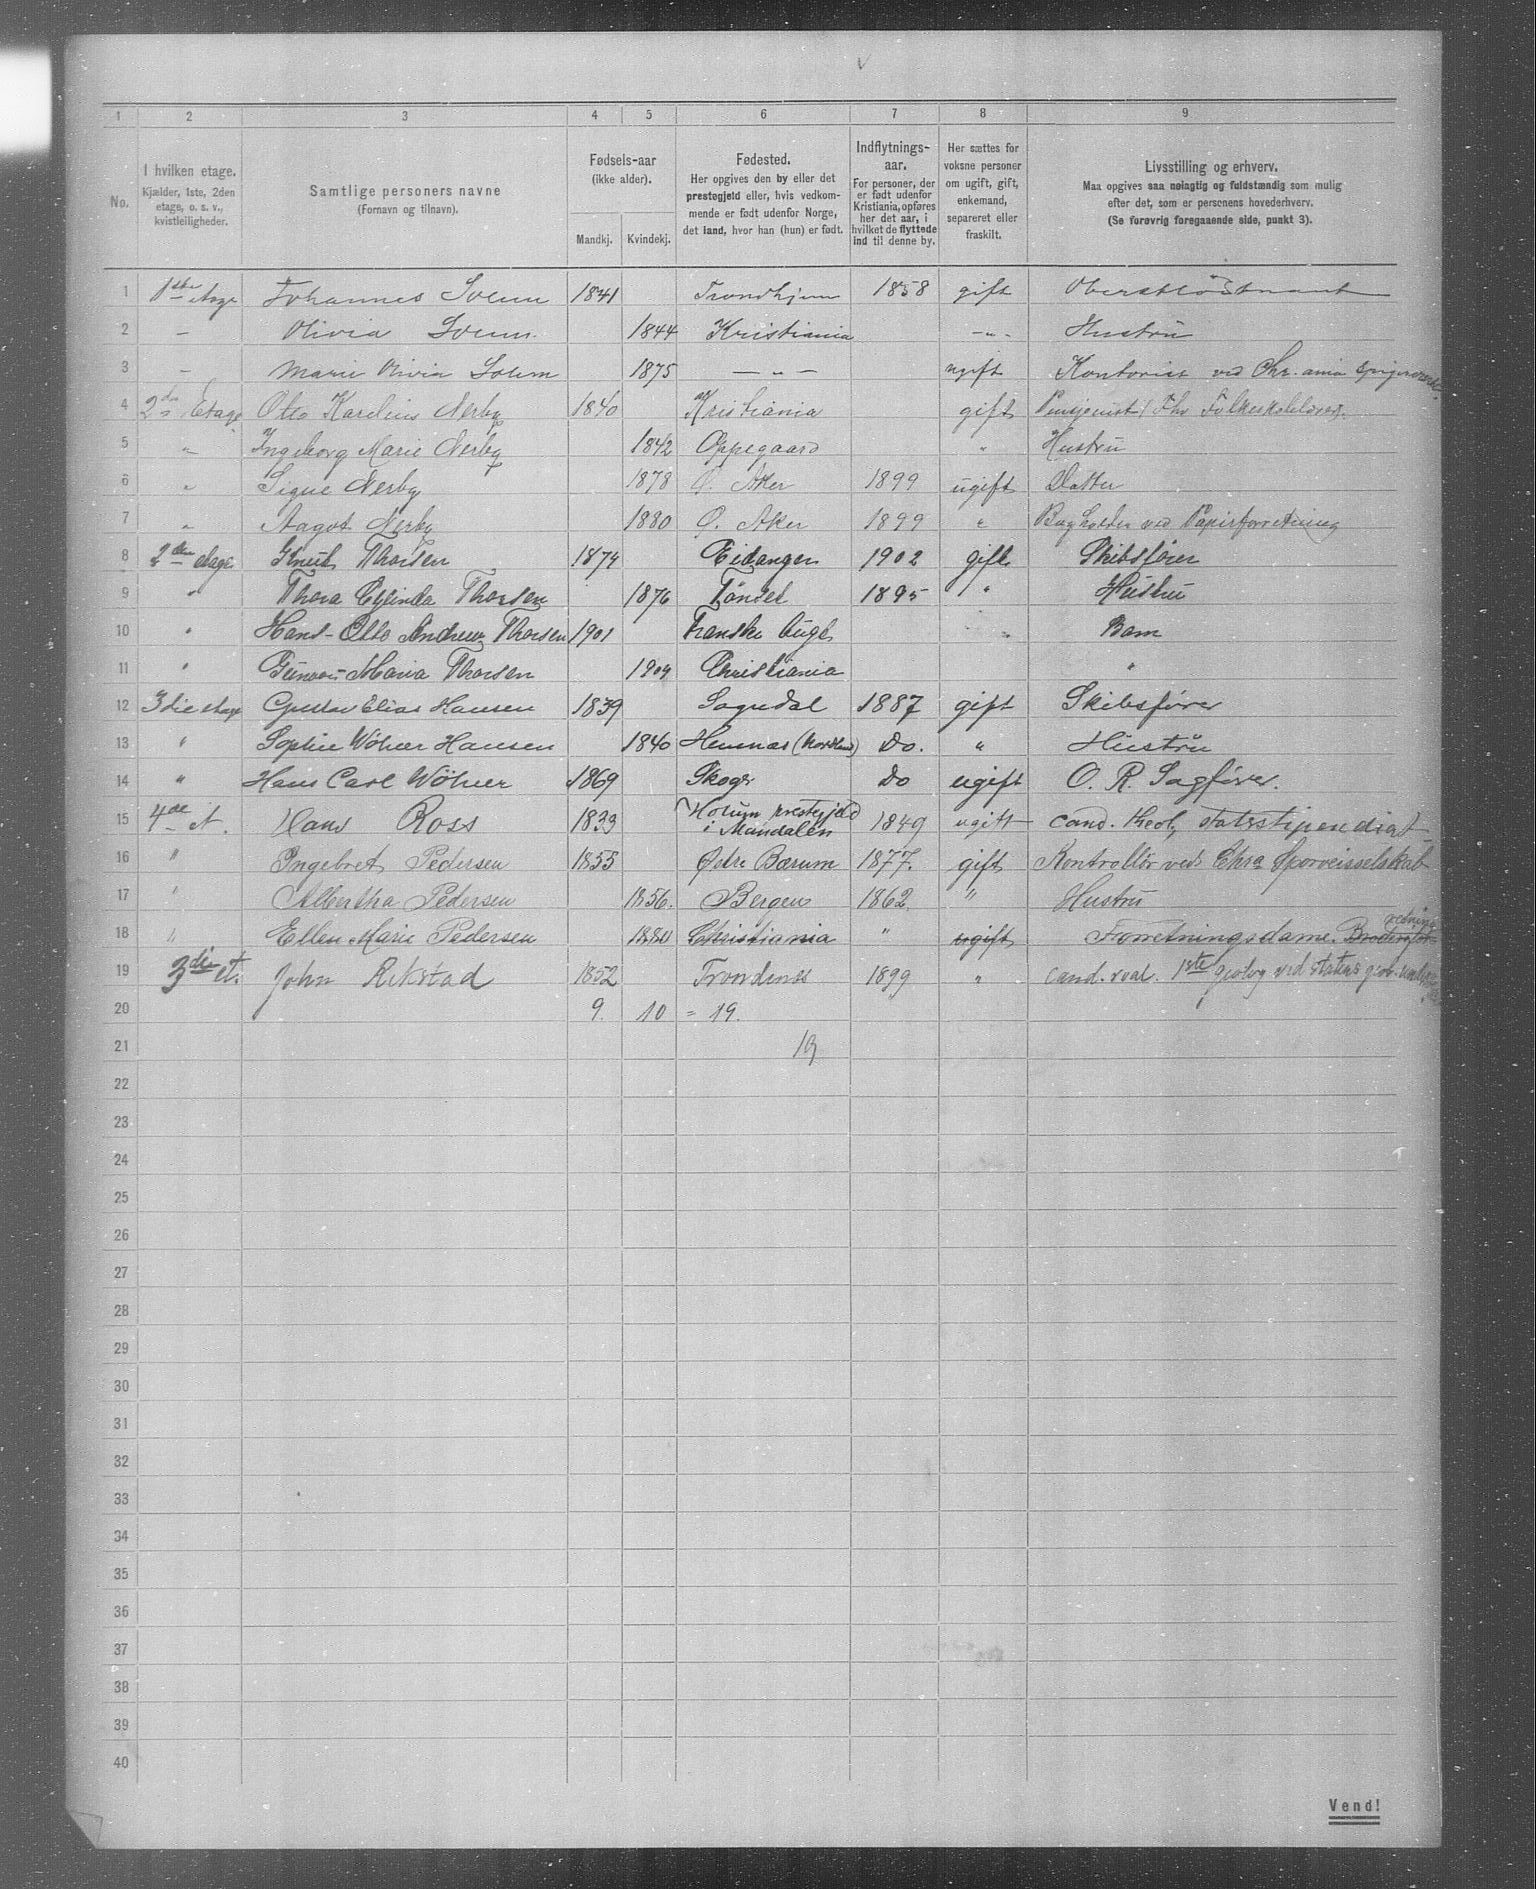 1 2 3 4 5 6 7 8 9
No.
I hvilken etage.
Kjælder, 1ste, 2den
etage, o. s. v.,
kvistleiligheder.
Samtlige personers navne
(Fornavn og tilnavn).
Fødsels-aar
(ikke alder).
Mandkj. Kvindekj.
Fødested.
Her opgives den by eller det
prestegjeld eller, hvis vedkom-
mende er født udenfor Norge,
det land, hvor han (hun) er født.
Indflytnings-
aar.
For personer, der
er født udenfor
Kristiania, opføres
her det aar, i
hvilket de flyttede
ind til denne by.
Her sættes for
voksne personer
om ugift, gift,
enkemand,
separeret eller
fraskilt.
Livsstilling og erhverv.
Maa opgives saa nøiagtig og fuldstændig som mulig
efter det, som er personens hovederhverv.
(Se forøvrig foregaaende side, punkt 3).
1 1ste Johannes Solem 1841 Trondhjem 1858 gift Oberstløitnant
2 — Olivia Solem 1844 Kristiania —"— Hustru
3 — Marie Olivia Solem 1875 — " — ugift Kontorist ved Chr.ania
4 2den Etage Otto Karelius Nerby 1840 Kristiania gift Pensjonist
5 " Ingeborg Marie Nerby 1842 Oppegaard " Hustru
6 " Signe Nerby 1878 Ø. Aker 1899 ugift Datter
7 " Aagot Nerby 1880 Ø. Aker 1899 " Bogholder ved Papirforretning
8 2den etage Knut Thorsen 1874 Eidanger 1902 gift Skibsfører
9 " Thora Thorsen 1876 Tønset 1895 " Hustru
10 " Hans-Otto Andreas Thorsen 1901 Franske "
Barn
11 " Maria Thorsen 1904 Christiania "
12 3die etage Gustav Elias Hansen 1839 Sogndal 1887 gift Skibsfører
13 " Sophie Wølner Hansen 1840 Hemnæs (Nordland) Do. " Hustru
14 " Hans Carl Wølner 1869 Skoger Do ugift O. R. Sagfører.
15 4de et. Hans Ross 1833 Holum prestegjeld
i Mandalen 1849 ugift cand. theol, statsstipendiat
16 " Ingebret Pedersen 1855 Østre Bærum 1877. gift Kontrollør ved Chra Sporveisselskab
17 " Albertha Pedersen 1856. Bergen 1862 " Hustru
18 " Ellen Marie Pedersen 1880 Christiania " ugift Forretningsdame.
19 3die et. John Rekstad 1852 Trondenes 1899 " cand. real. 1ste geolog ved statens
20 9. 10 = 19.
21 19
22
23
24
25
26
27
28
29
30
31
32
33
34
35
36
37
38
39
40
Vend!